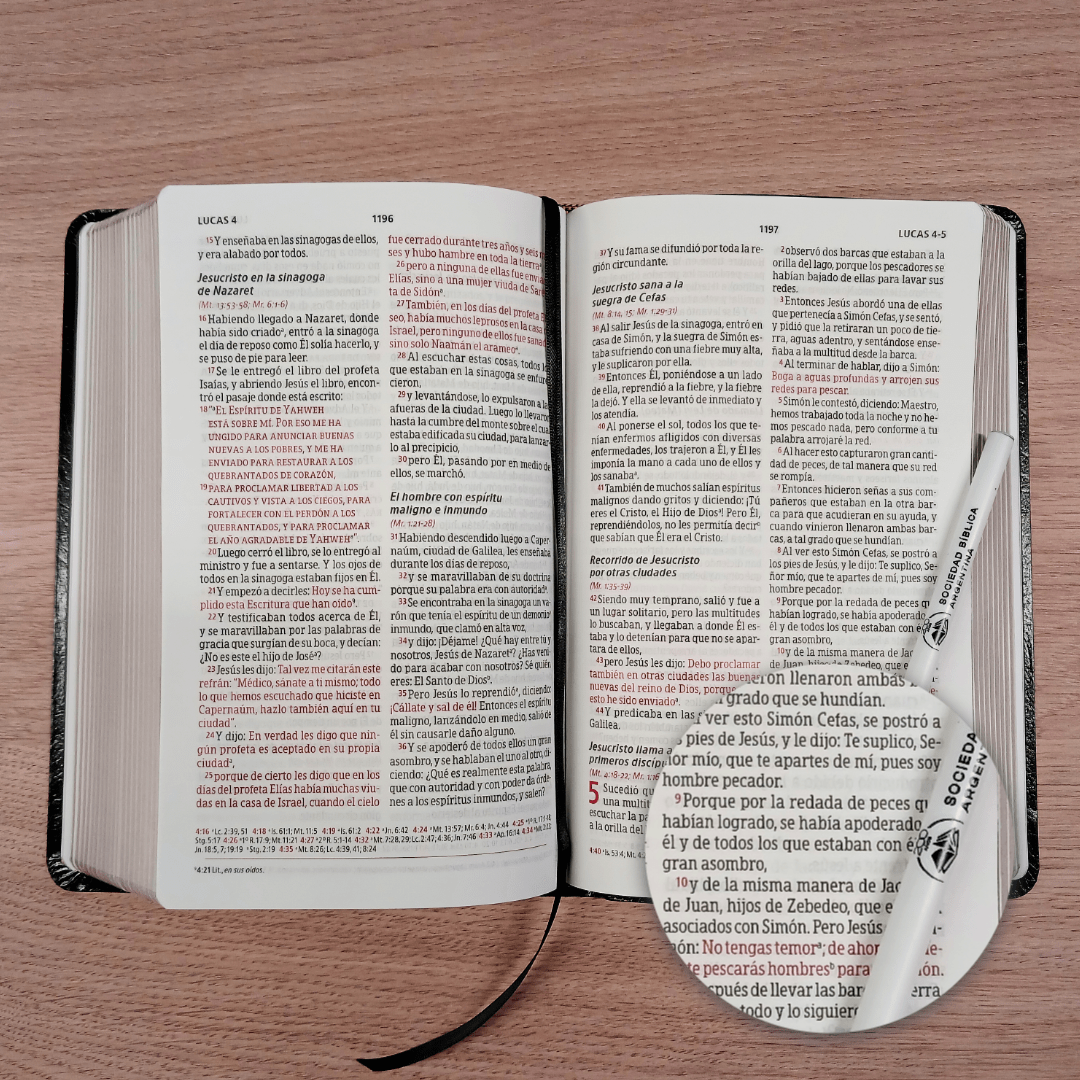 LUCAS 4
1196
15Y enseñaba en las sinagogas de ellos,
y era alabado por todos.
Jesucristo en la sinagoga
de Nazaret
(Mt. 13:53-58; Mr. 6:1-6)
16Habiendo llegado a Nazaret, donde
había sido criadoª, entró a la sinagoga
el día de reposo como Él solía hacerlo, y
se puso de pie para leer.
17Se le entregó el libro del profeta
Isaías, y abriendo Jesús el libro, encon-
tró el pasaje donde está escrito:
18"ªEL ESPÍRITU DE YAHWEH
ESTÁ SOBRE MÍ. POR ESO ME HA
UNGIDO PARA ANUNCIAR BUENAS
NUEVAS A LOS POBRES, Y ME HA
ENVIADO PARA RESTAURAR A LOS
QUEBRANTADOS DE CORAZÓN,
19PARA PROCLAMAR LIBERTAD A LOS
CAUTIVOS Y VISTA A LOS CIEGOS, PARA
FORTALECER CON EL PERDÓN A LOS
QUEBRANTADOS, Y PARA PROCLAMAR
EL AÑO AGRADABLE DE YAHWEHª".
20Luego cerró el libro, se lo entregó al
ministro y fue a sentarse. Y los ojos de
todos en la sinagoga estaban fijos en Él.
21Y empezó a decirles: Hoy se ha cum-
plido esta Escritura que han oído¹.
22Y testificaban todos acerca de Él,
y se maravillaban por las palabras de
gracia que surgían de su boca, y decían:
¿No es este el hijo de Joséª?
23Jesús les dijo: Tal vez me citarán este
refrán: "Médico, sánate a ti mismo; todo
lo que hemos escuchado que hiciste en
Capernaúm, hazlo también aquí en tu
ciudad".
24Y dijo: En verdad les digo que nin-
gún profeta es aceptado en su propia
ciudadª,
25porque de cierto les digo que en los
días del profeta Elías había muchas viu-
das en la casa de Israel, cuando el cielo
fue cerrado durante tres años y seis
ses y hubo hambre en toda la tierraª
26pero a ninguna de ellas fue
Elías, sino a una mujer viuda de
ta de Sidónª.
27También, en los días del profeta
seo, había muchos leprosos en la casa
Israel, pero ninguno de ellos fue
sino solo Naamán el arameoª.
28Al escuchar estas cosas, todos
que estaban en la sinagoga se
cieron,
29y levantándose, lo expulsaron a las
afueras de la ciudad. Luego lo
hasta la cumbre del monte sobre el
estaba edificada su ciudad, para
lo al precipicio,
30pero Él, pasando por en medio de
ellos, se marchó.
El hombre con espíritu
maligno e inmundo
(Mr. 1:21-28)
31Habiendo descendido luego a Caper-
naúm, ciudad de Galilea, les enseñaba
durante los días de reposo,
32y se maravillaban de su doctrina
porque su palabra era con autoridadª.
33Se encontraba en la sinagoga un va-
rón que tenía el espíritu de un demonio
inmundo, que clamó en alta voz,
34y dijo: ¡Déjame! ¿Qué hay entre tú y
nosotros, Jesús de Nazaretª? ¿Has veni-
do para acabar con nosotros? Sé quién
eres: El Santo de Diosᵇ.
35Pero Jesús lo reprendióª, diciendo:
¡Cállate y sal de él! Entonces el espíritu
maligno, lanzándolo en medio, salió de
él sin causarle daño alguno.
36Y se apoderó de todos ellos un gran
asombro, y se hablaban el uno al otro, di-
ciendo: ¿Qué es realmente esta palabra,
que con autoridad y con poder da órde-
nes a los espíritus inmundos, y salen?
4:16 ªLc. 2:39, 51 4:18 ªIs. 61:1; Mt. 11:5 4:19 ªIs. 61:2 4:22 ªJn. 6:42 4:24 ªMt. 13:57; Mr. 6:4; Jn. 4:44
Stg. 5:17 4:26 ª1º R. 17:9; Mt 11:21 4:27 ª2º R. 5:1-14 4:32 ªMt. 7:28, 29; Lc. 2:47; 4:36; Jn. 7:46 4:33 ªAp. 16:14
Jn. 18:5, 7; 19:19 ᵇStg. 2:19 4:35 ªMt. 8:26; Lc. 4:39, 41; 8:24
¹4:21 Lit., en sus oídos.
1197
LUCAS 4-5
37Y su fama se difundió por toda la re-
gión circundante.
Jesucristo sana a la
suegra de Cefas
(Mt. 8:14, 15; Mr. 1:29-31)
38Al salir Jesús de la sinagoga, entró en
casa de Simón, y la suegra de Simón es-
taba sufriendo con una fiebre muy alta,
y le suplicaron por ella.
39Entonces Él, poniéndose a un lado
de ella, reprendió a la fiebre, y la fiebre
la dejó. Y ella se levantó de inmediato y
los atendía.
40Al ponerse el sol, todos los que te-
nían enfermos afligidos con diversas
enfermedades, los trajeron a Él, y Él les
imponía la mano a cada uno de ellos y
los sanabaª.
41También de muchos salían espíritus
malignos dando gritos y diciendo: ¡Tú
eres el Cristo, el Hijo de Diosª! Pero Él,
reprendiéndolos, no les permitía decirᵇ
que sabían que Él era el Cristo.
Recorrido de Jesucristo
por otras ciudades
(Mr. 1:35-39)
42Siendo muy temprano, salió y fue a
un lugar solitario, pero las multitudes
lo buscaban, y llegaban a donde Él es-
taba y lo detenían para que no se apar-
tara de ellos,
43pero Jesús les dijo: Debo proclamar
también en otras ciudades las buenas
nuevas del reino de Dios, porque
esto he sido enviadoª.
44Y predicaba en las
Galilea.
Jesucristo llama a
primeros
(Mt. 4:18-22; Mr.
5 Sucedió
una
escuchar la
a la orilla del
4:40 ªIs. 53:4; Mt.
2observó dos barcas que estaban a la
orilla del lago, porque los pescadores se
habían bajado de ellas para lavar sus
redes.
3Entonces Jesús abordó una de ellas
que pertenecía a Simón Cefas, y se sentó,
y pidió que la retiraran un poco de tie-
rra, aguas adentro, y sentándose ense-
ñaba a la multitud desde la barca.
4Al terminar de hablar, dijo a Simón:
Boga a aguas profundas y arrojen sus
redes para pescar.
5Simón le contestó, diciendo: Maestro,
hemos trabajado toda la noche y no he-
mos pescado nada, pero conforme a tu
palabra arrojaré la red.
6Al hacer esto capturaron gran canti-
dad de peces, de tal manera que su red
se rompía.
7Entonces hicieron señas a sus com-
pañeros que estaban en la otra bar-
ca para que acudieran en su ayuda, y
cuando vinieron llenaron ambas bar-
cas, a tal grado que se hundían.
8Al ver esto Simón Cefas, se postró a
los pies de Jesús, y le dijo: Te suplico, Se-
ñor mío, que te apartes de mí, pues soy
hombre pecador.
9Porque por la redada de peces
habían logrado, se había apoderado
él y de todos los que estaban con
gran asombro,
10y de la misma manera de
de Juan, hijos de Zebedeo, que e
SOCIEDAD BÍBLICA
ARGENTINA
llenaron ambas
grado que se hundían.
ver esto Simón Cefas, se postró a
pies de Jesús, y le dijo: Te suplico, Se-
mío, que te apartes de mí, pues soy
hombre pecador.
9Porque por la redada de peces
habían logrado, se había apoderado
él y de todos los que estaban con
gran asombro,
10y de la misma manera de
de Juan, hijos de Zebedeo, que
asociados con Simón. Pero Jesús
No tengas temorª; de
te pescarás hombresᵇ para
de llevar las
todo y lo
SOCIEDA
ARGENT